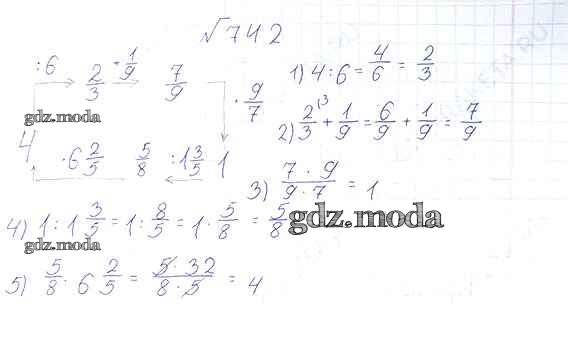 √742
:6 2/3 + 1/9 7/9 · 9/7
gdz.moda
4 · 6 2/5 5/8 : 1 3/5 1
gdz.moda
1) 4 : 6 = 4/6 = 2/3
2) 2/3 (3 + 1/9 = 6/9 + 1/9 = 7/9
3) 7 · 9 / 9 · 7 = 1
4) 1 : 1 3/5 = 1 : 8/5 = 1 · 5/8 = 5/8
gdz.moda
gdz.moda
5) 5/8 · 6 2/5 = 5 · 32 / 8 · 5 = 4